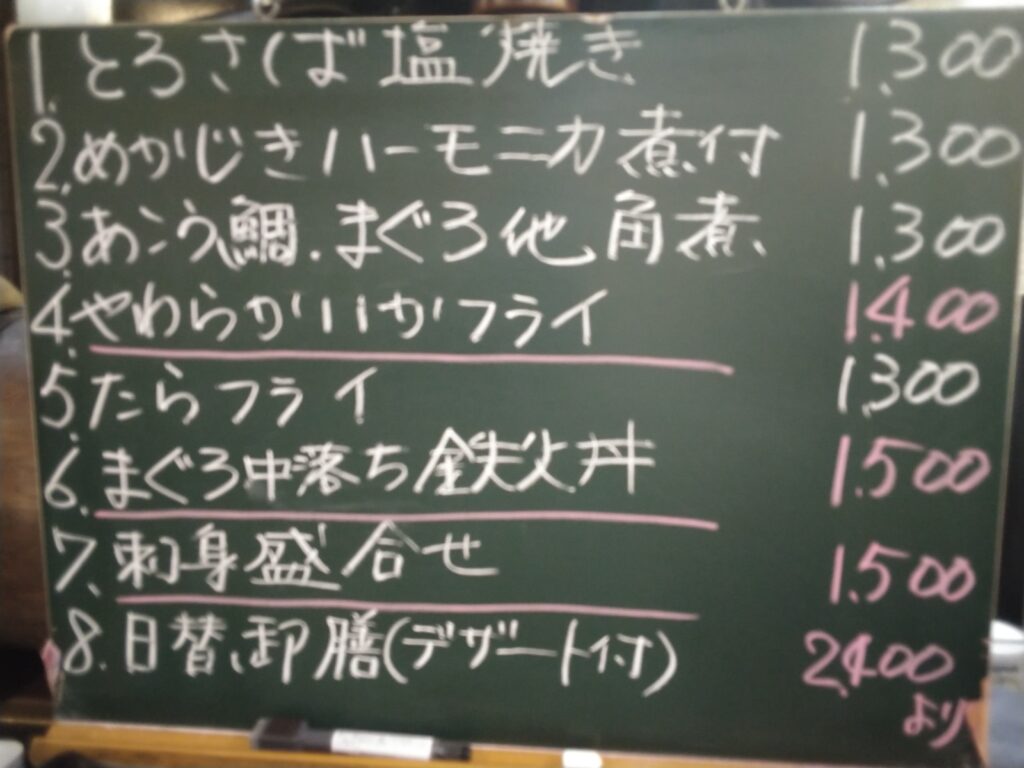 1.とろさば塩焼き 1,300
2.めかじきハーモニカ煮付 1,300
3.あこう鯛.まぐろ他角煮 1,300
4.やわらかいいかフライ 1,400
5.たらフライ 1,300
6.まぐろ中落ち鉄火丼 1,500
7.刺身盛合せ 1,500
8.日替御膳(デザート付) 2,400
より